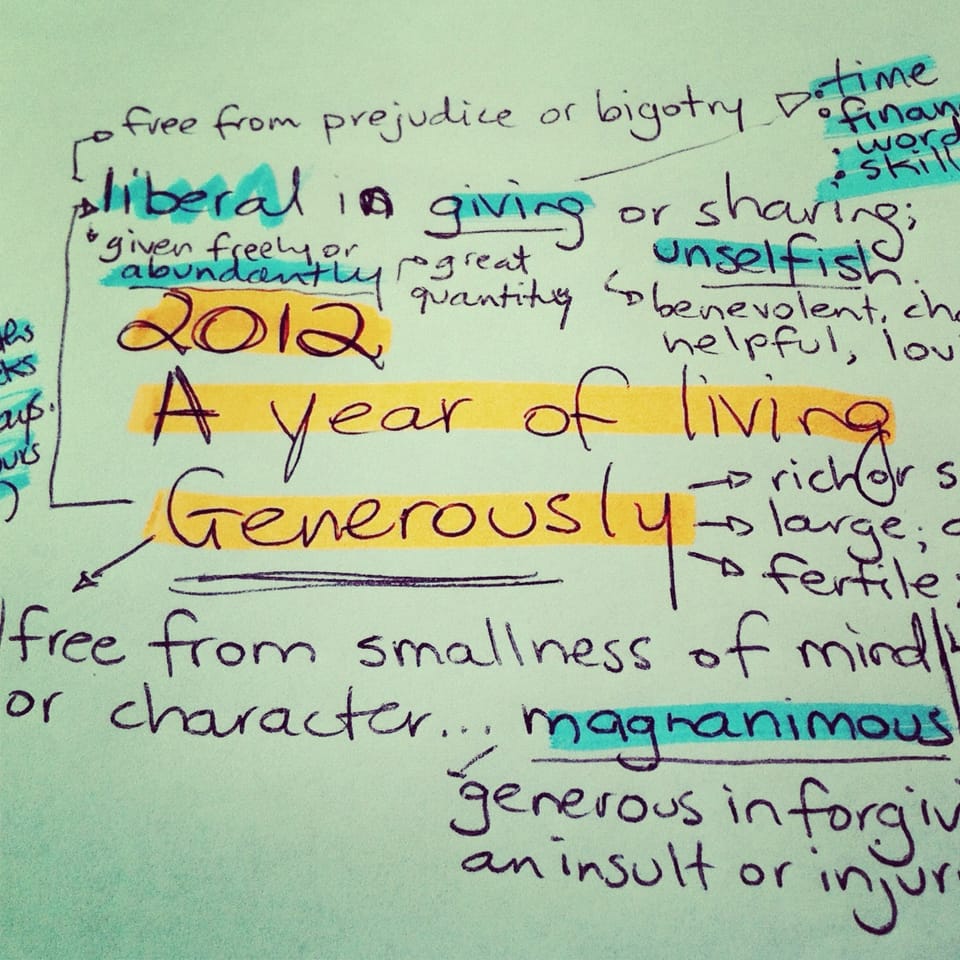 free from prejudice or bigotry
time
finan
word
skill
liberal in giving or sharing;
given freely or
abundantly
great
quantity
unselfish.
benevolent, cha
helpful, lov
2012
A year of living
Generously
rich or s
large;
fertile;
free from smallness of mind
or character... magnanimous
generous in forgiv
an insult or injur